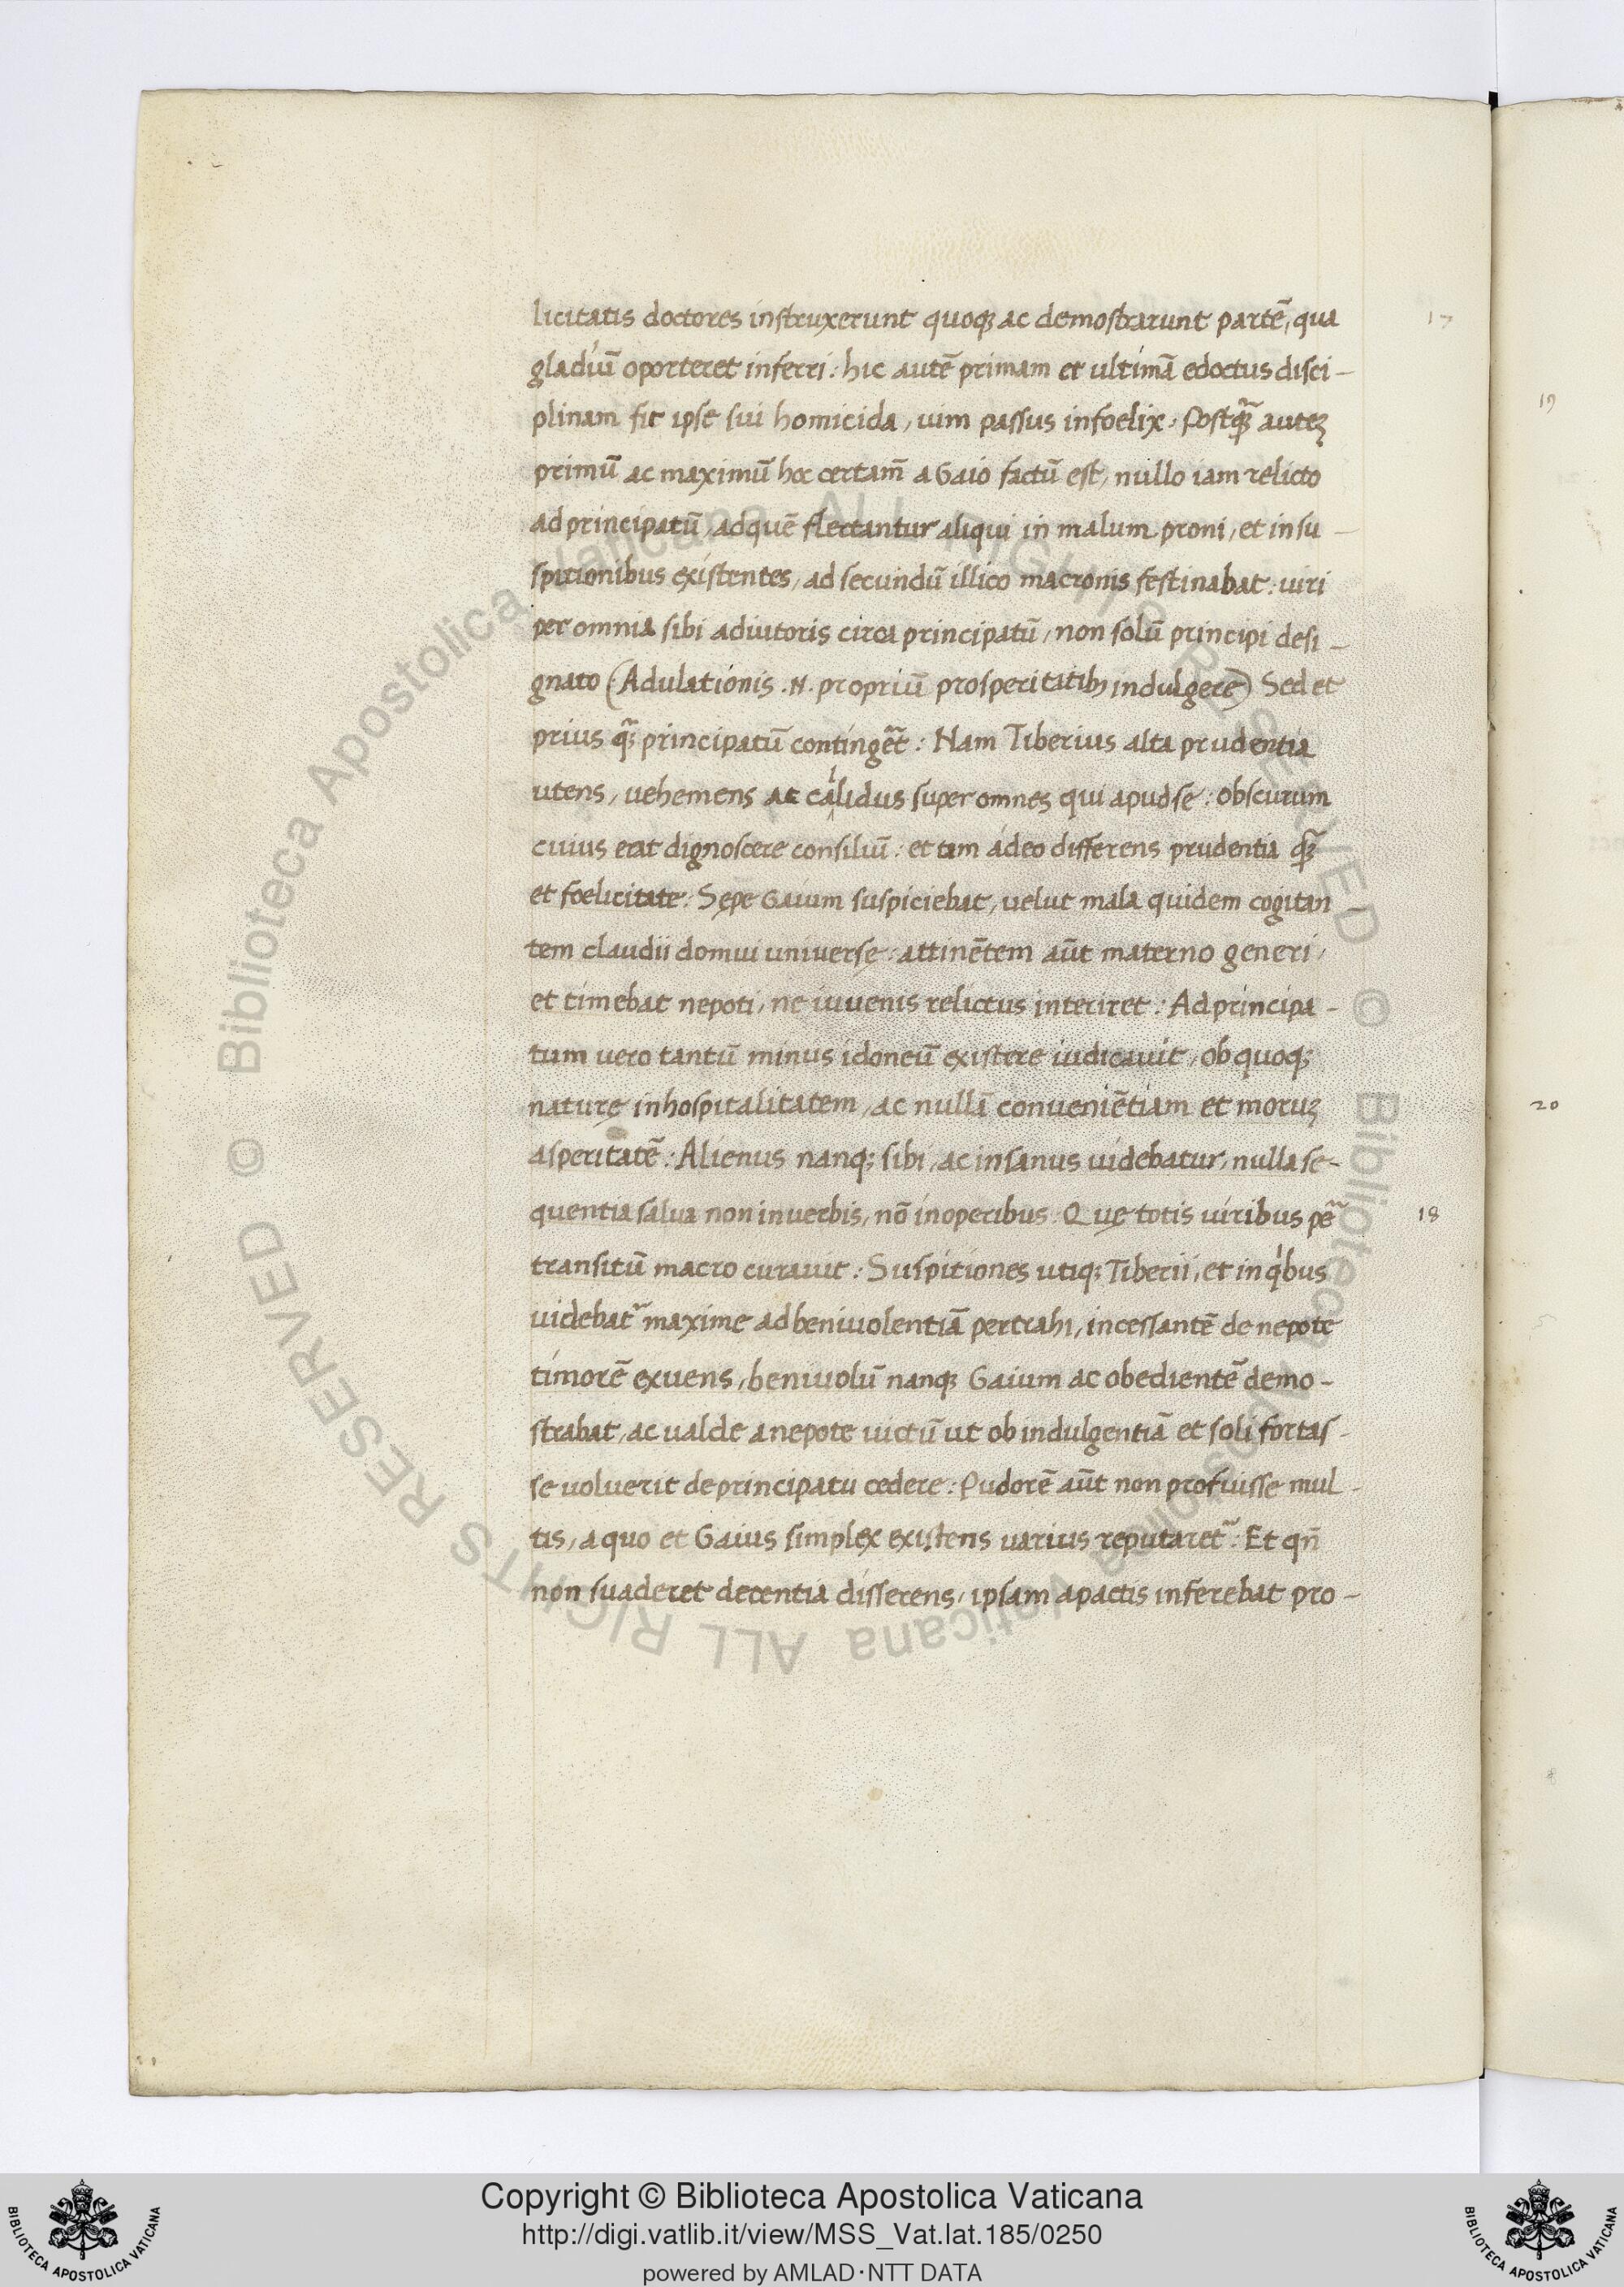 licitatis doctores instruxerunt quoqꝫ ac demostrarunt partē, qua
17
gladiū oporteret inferri: hic autē primam et ultimā edoctus disci-
plinam fit ipse sui homicida, uim passus infoelix. Postꝗ̃ auteꝫ
primū ac maximū hoc certam̄ a Gaio factū est, nullo iam relicto
ad principatū, ad quē flectantur aliqui in malum proni, et in su-
spitionibus existentes, ad secundū illico macronis festinabat: uiri
per omnia sibi adiutoris circa principatū, non solū principi desi-
gnato (Adulationis .N. propriū prosperitatibꝫ indulgere) Sed et
prius ꝗ̃ principatū contingēt: Nam Tiberius alta prudentia
utens, uehemens ac callidus super omnes qui apud se: obscurum
cuius erat dignoscere consiliū: et tam adeo differens prudentia ꝗ̃
et foelicitate: Sępe Gaium suspiciebat, uelut mala quidem cogitan-
tem claudii domui uniuersę: attinētem aūt materno generi,
et timebat nepoti, ne iuuenis relictus interiret: Ad principa-
tum uero tantū minus idoneū existere iudicauit, ob quoqꝫ
naturę inhospitalitatem, ac nullā conueniētiam et moruꝫ
asperitatē: Alienus nanqꝫ sibi, ac insanus uidebatur, nulla se-
quentia salua non in uerbis, nō in operibus. Quę totis uiribus pẽ
18
transitū macro curauit: Suspitiones utiqꝫ Tiberii, et in qͥbus
uidebat᷑ maxime ad beniuolentiā pertrahi, incessantē de nepote
timorē exuens, beniuolū nanqꝫ Gaium ac obedientē demo-
strabat, ac ualde a nepote uictū ut ob indulgentiā et soli fortas-
se uoluerit de principatu cedere: Pudorē aūt non profuisse mul-
tis, a quo et Gaius simplex existens uarius reputaret᷑: Et qn̄
non suaderet decentia disserens, ipsam a pactis inferebat pro-
19
20
Copyright © Biblioteca Apostolica Vaticana
http://digi.vatlib.it/view/MSS_Vat.lat.185/0250
powered by AMLAD·NTT DATA
BIBLIOTECA APOSTOLICA VATICANA
BIBLIOTECA APOSTOLICA VATICANA
© Biblioteca Apostolica Vaticana ALL RIGHTS RESERVED
© Biblioteca Apostolica Vaticana ALL RIGHTS RESERVED